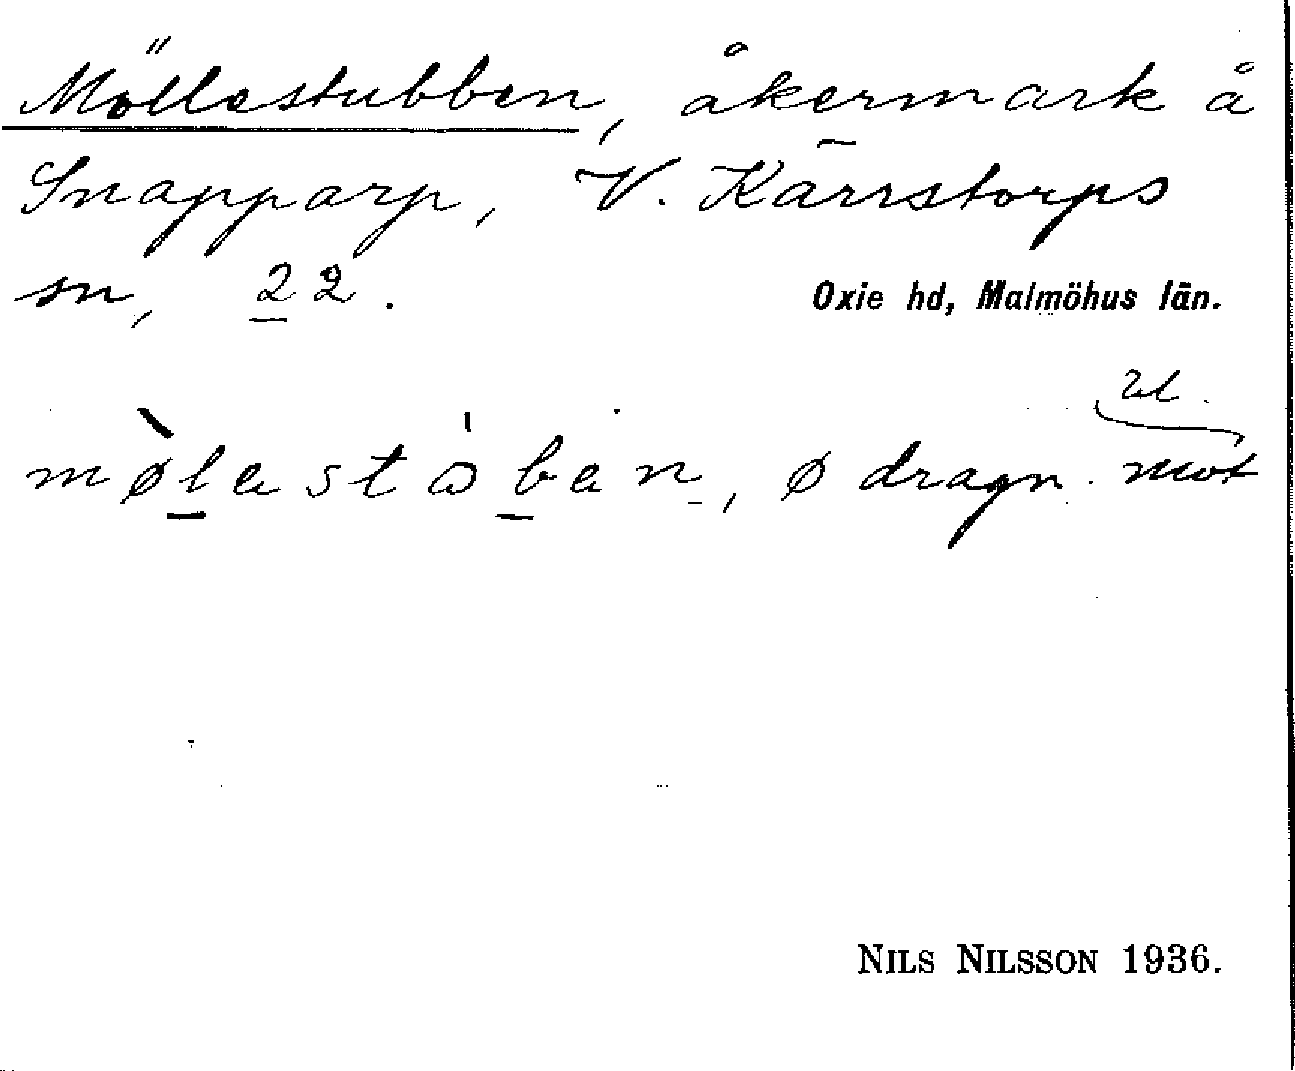 Möllestubben, åkermark å
Snapparp, V. Kärrstorps
sn, 22.
Oxie hd, Malmöhus län.
møl̲astɷb̲an, ø dragn. mot
NILS NILSSON 1936.